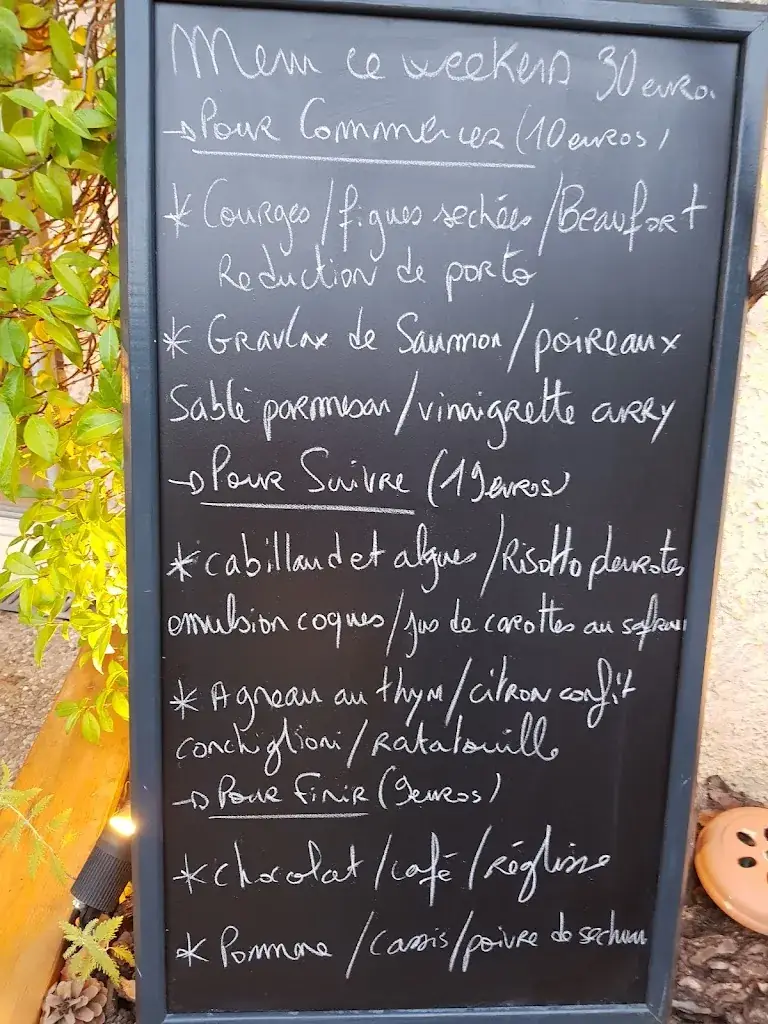 Menu ce weekend 30 euro.
→ Pour Commencer (10 euros)
* Courges / figues sechées / Beaufort
Reduction de porto
* Gravlax de Saumon / poireaux
Sablé parmesan / vinaigrette curry
→ Pour Suivre (19 euros)
* cabillaud et algues / Risotto pleurotes
emulsion coques / jus de carottes au safran
* Agneau au thym / citron confit
conchiglioni / Ratatouille
→ Pour Finir (9 euros)
* chocolat / café / Réglisse
* Pomme / cassis / poivre de sechuan